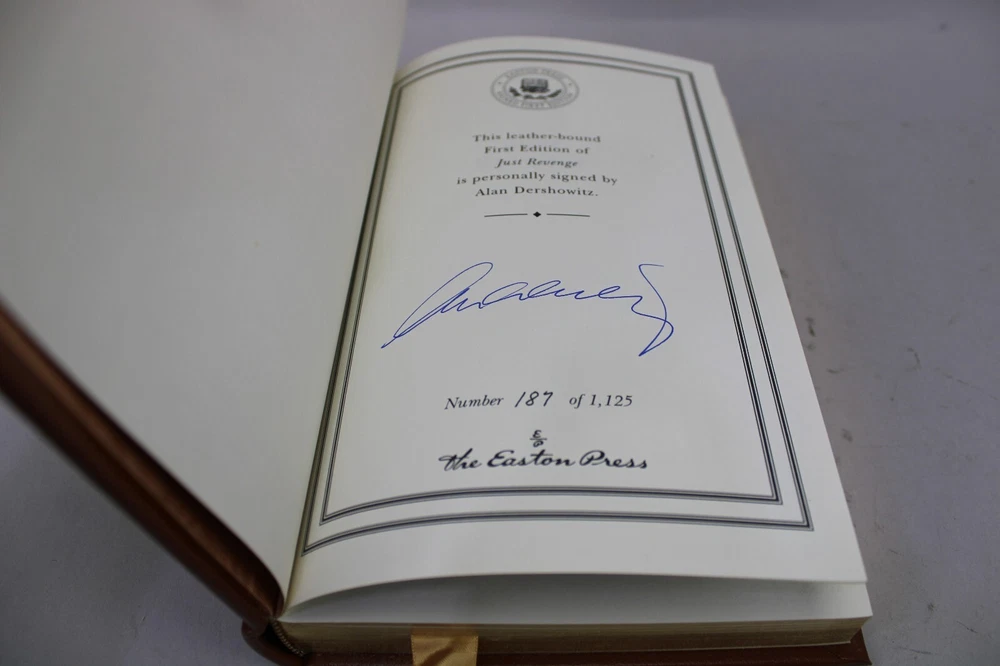 This leather-bound
First Edition of
Just Revenge
is personally signed by
Alan Dershowitz.
Number 187 of 1,125
the Easton Press